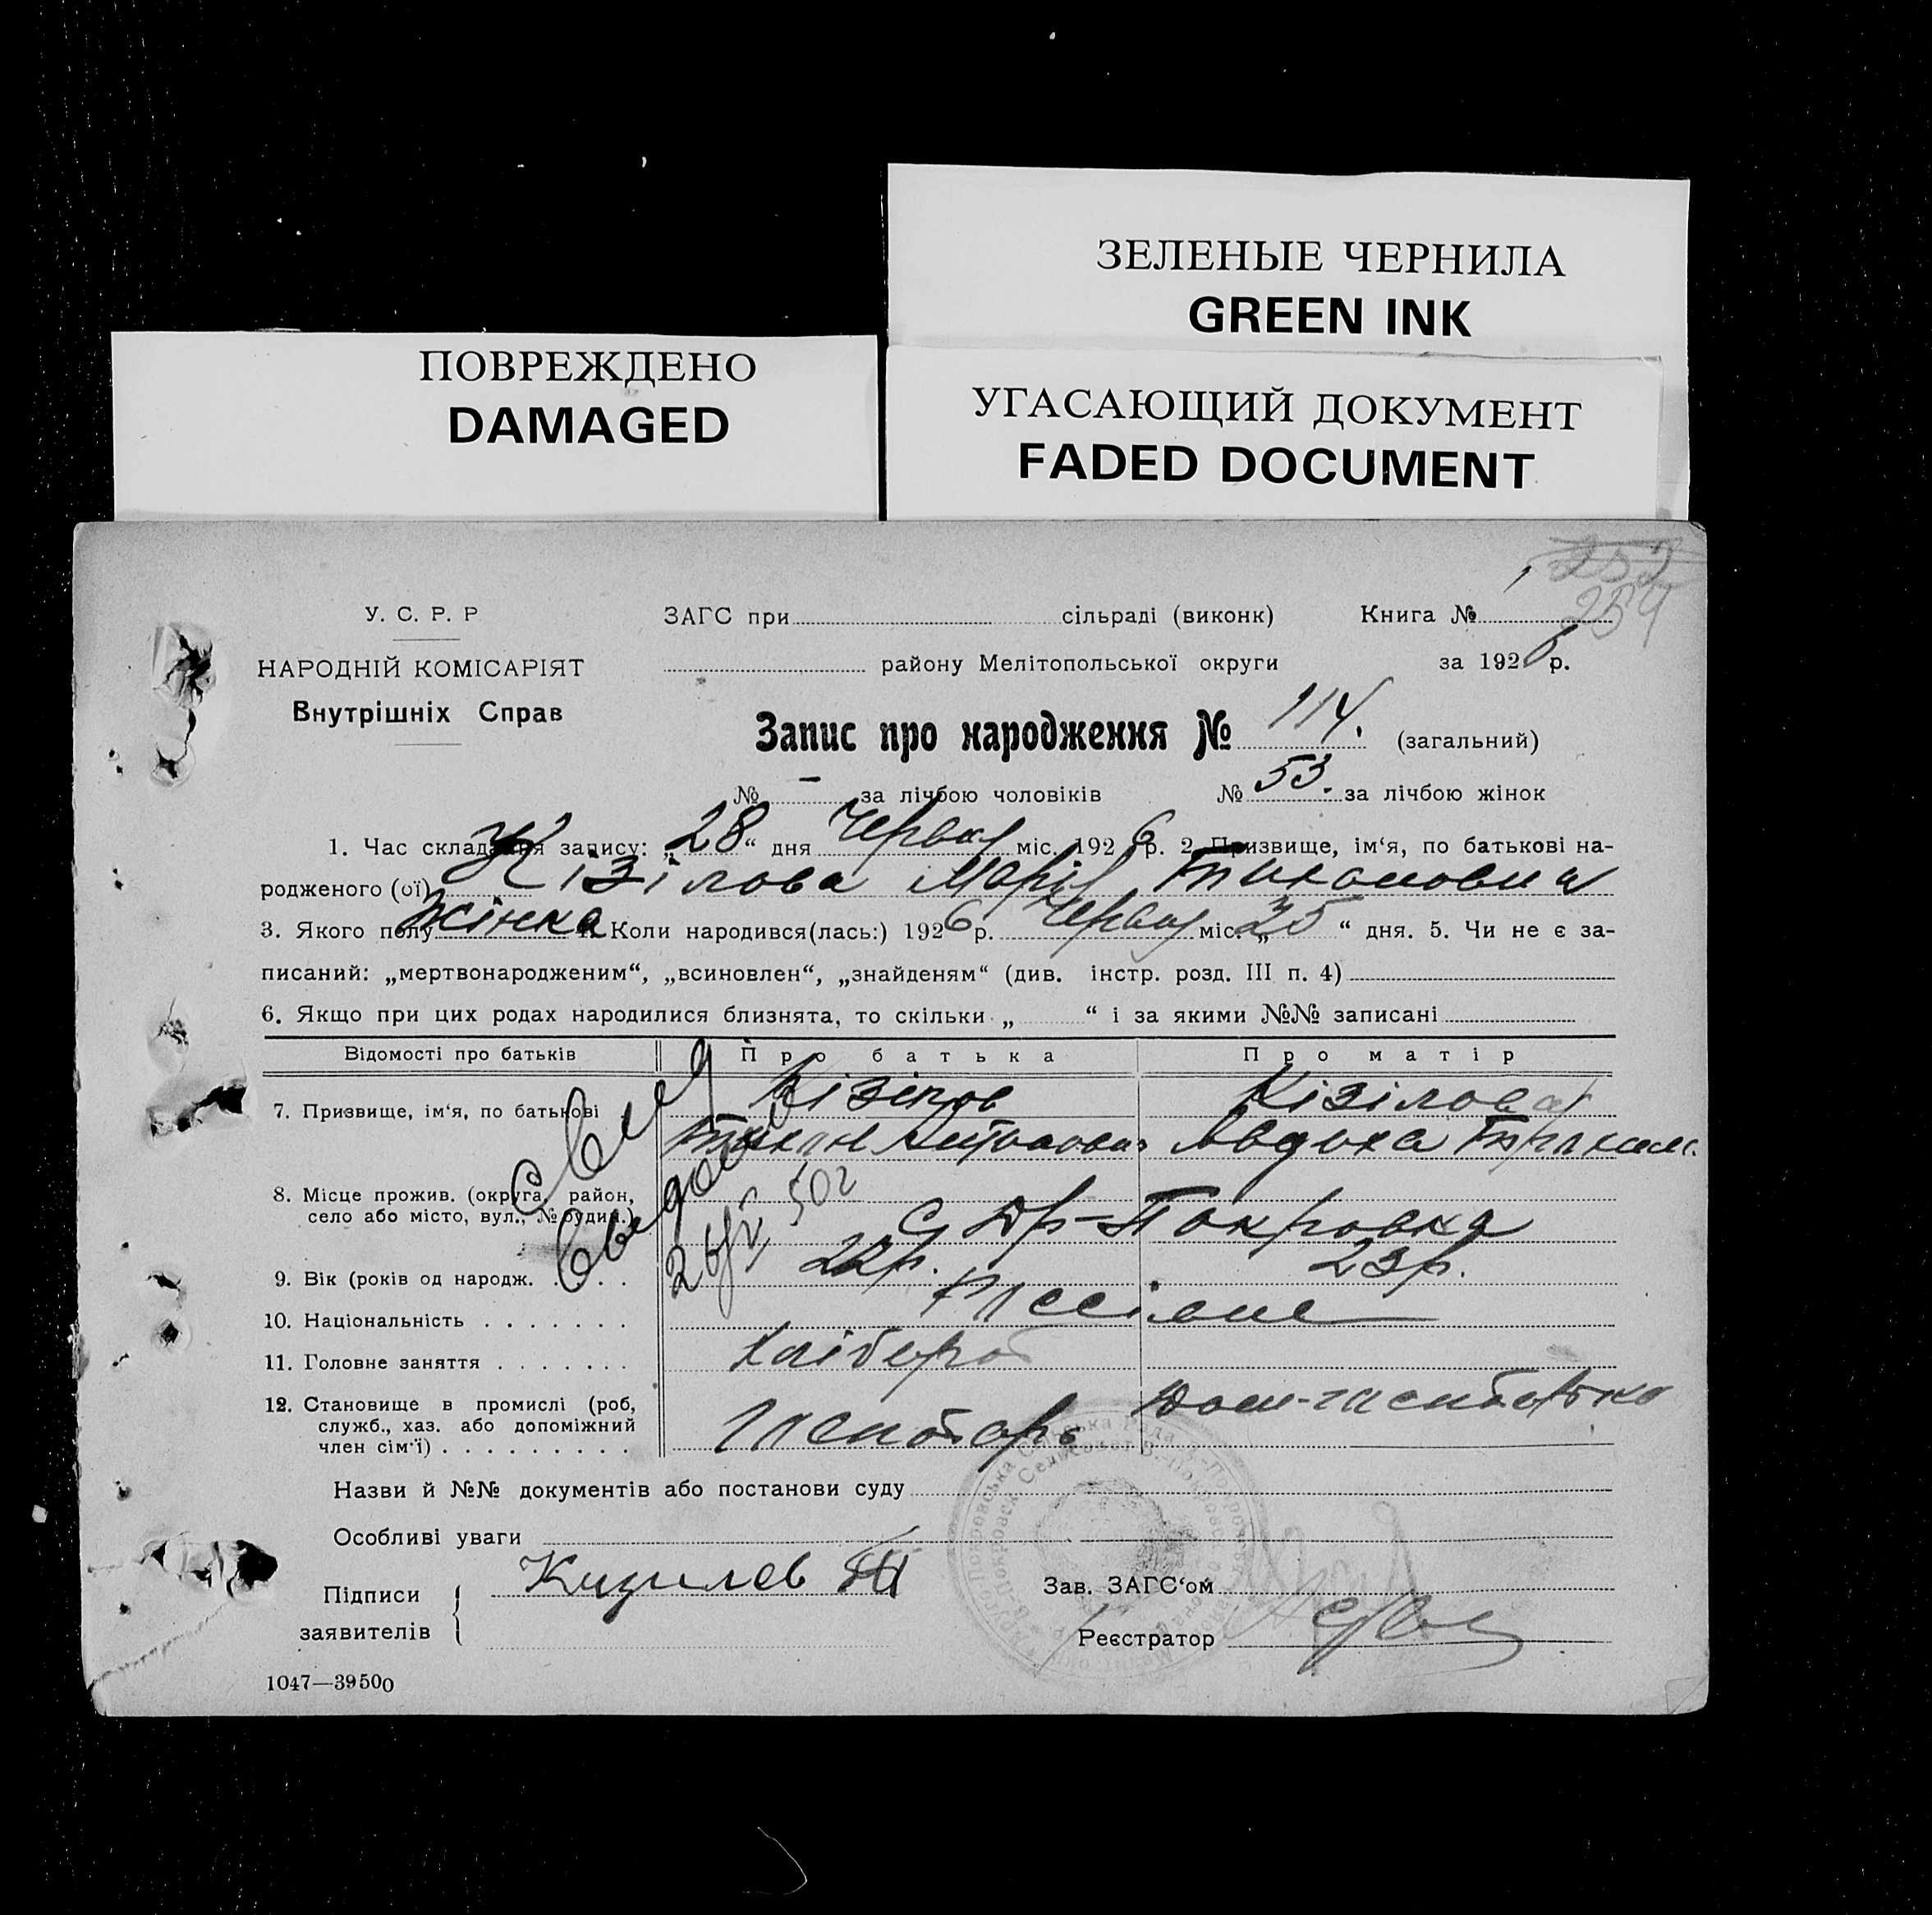 ЗЕЛЕНЫЕ ЧЕРНИЛА
GREEN INK
ПОВРЕЖДЕНО
DAMAGED
УГАСАЮЩИЙ ДОКУМЕНТ
FADED DOCUMENT
252
254
У. С. Р. Р
ЗАГС при сільраді (виконк) Книга № 1
НАРОДНІЙ КОМІСАРІЯТ
району Мелітопольської округи за 1926 р.
Внутрішніх Справ
Запис про народження № 114. (загальний)
№ – за лічбою чоловіків № 53. за лічбою жінок
1. Час складання запису: „28“ дня Червня міс. 1926 р. 2. Призвище, ім‘я, по батькові на-
родженого (ої) Кізілова Марія Тихоновна
3. Якого полу жінка 4. Коли народився(лась:) 1926 р. Червня міс. „25“ дня. 5. Чи не є за-
писаний: „мертвонародженим“, „всиновлен“, „знайденям“ (див. інстр. розд. III п. 4)
6. Якщо при цих родах народилися близнята, то скільки „ “ і за якими №№ записані
Відомості про батьків Про батька Про матір
7. Призвище, ім‘я, по батькові Кізілов Кізілова
Тихон Авдоха
8. Місце прожив. (округа, район, село або місто, вул., № будин.) С Др-Покровка
9. Вік (років од народж. 22р. 23р.
10. Національність
11. Головне заняття Хлібороб
12. Становище в промислі (роб, служб., хаз. або допоміжний член сім‘ї)
502
Назви й №№ документів або постанови суду
Особливі уваги
Підписи заявителів Кизилов
Зав. ЗАГС‘ом
Реєстратор
1047—39500